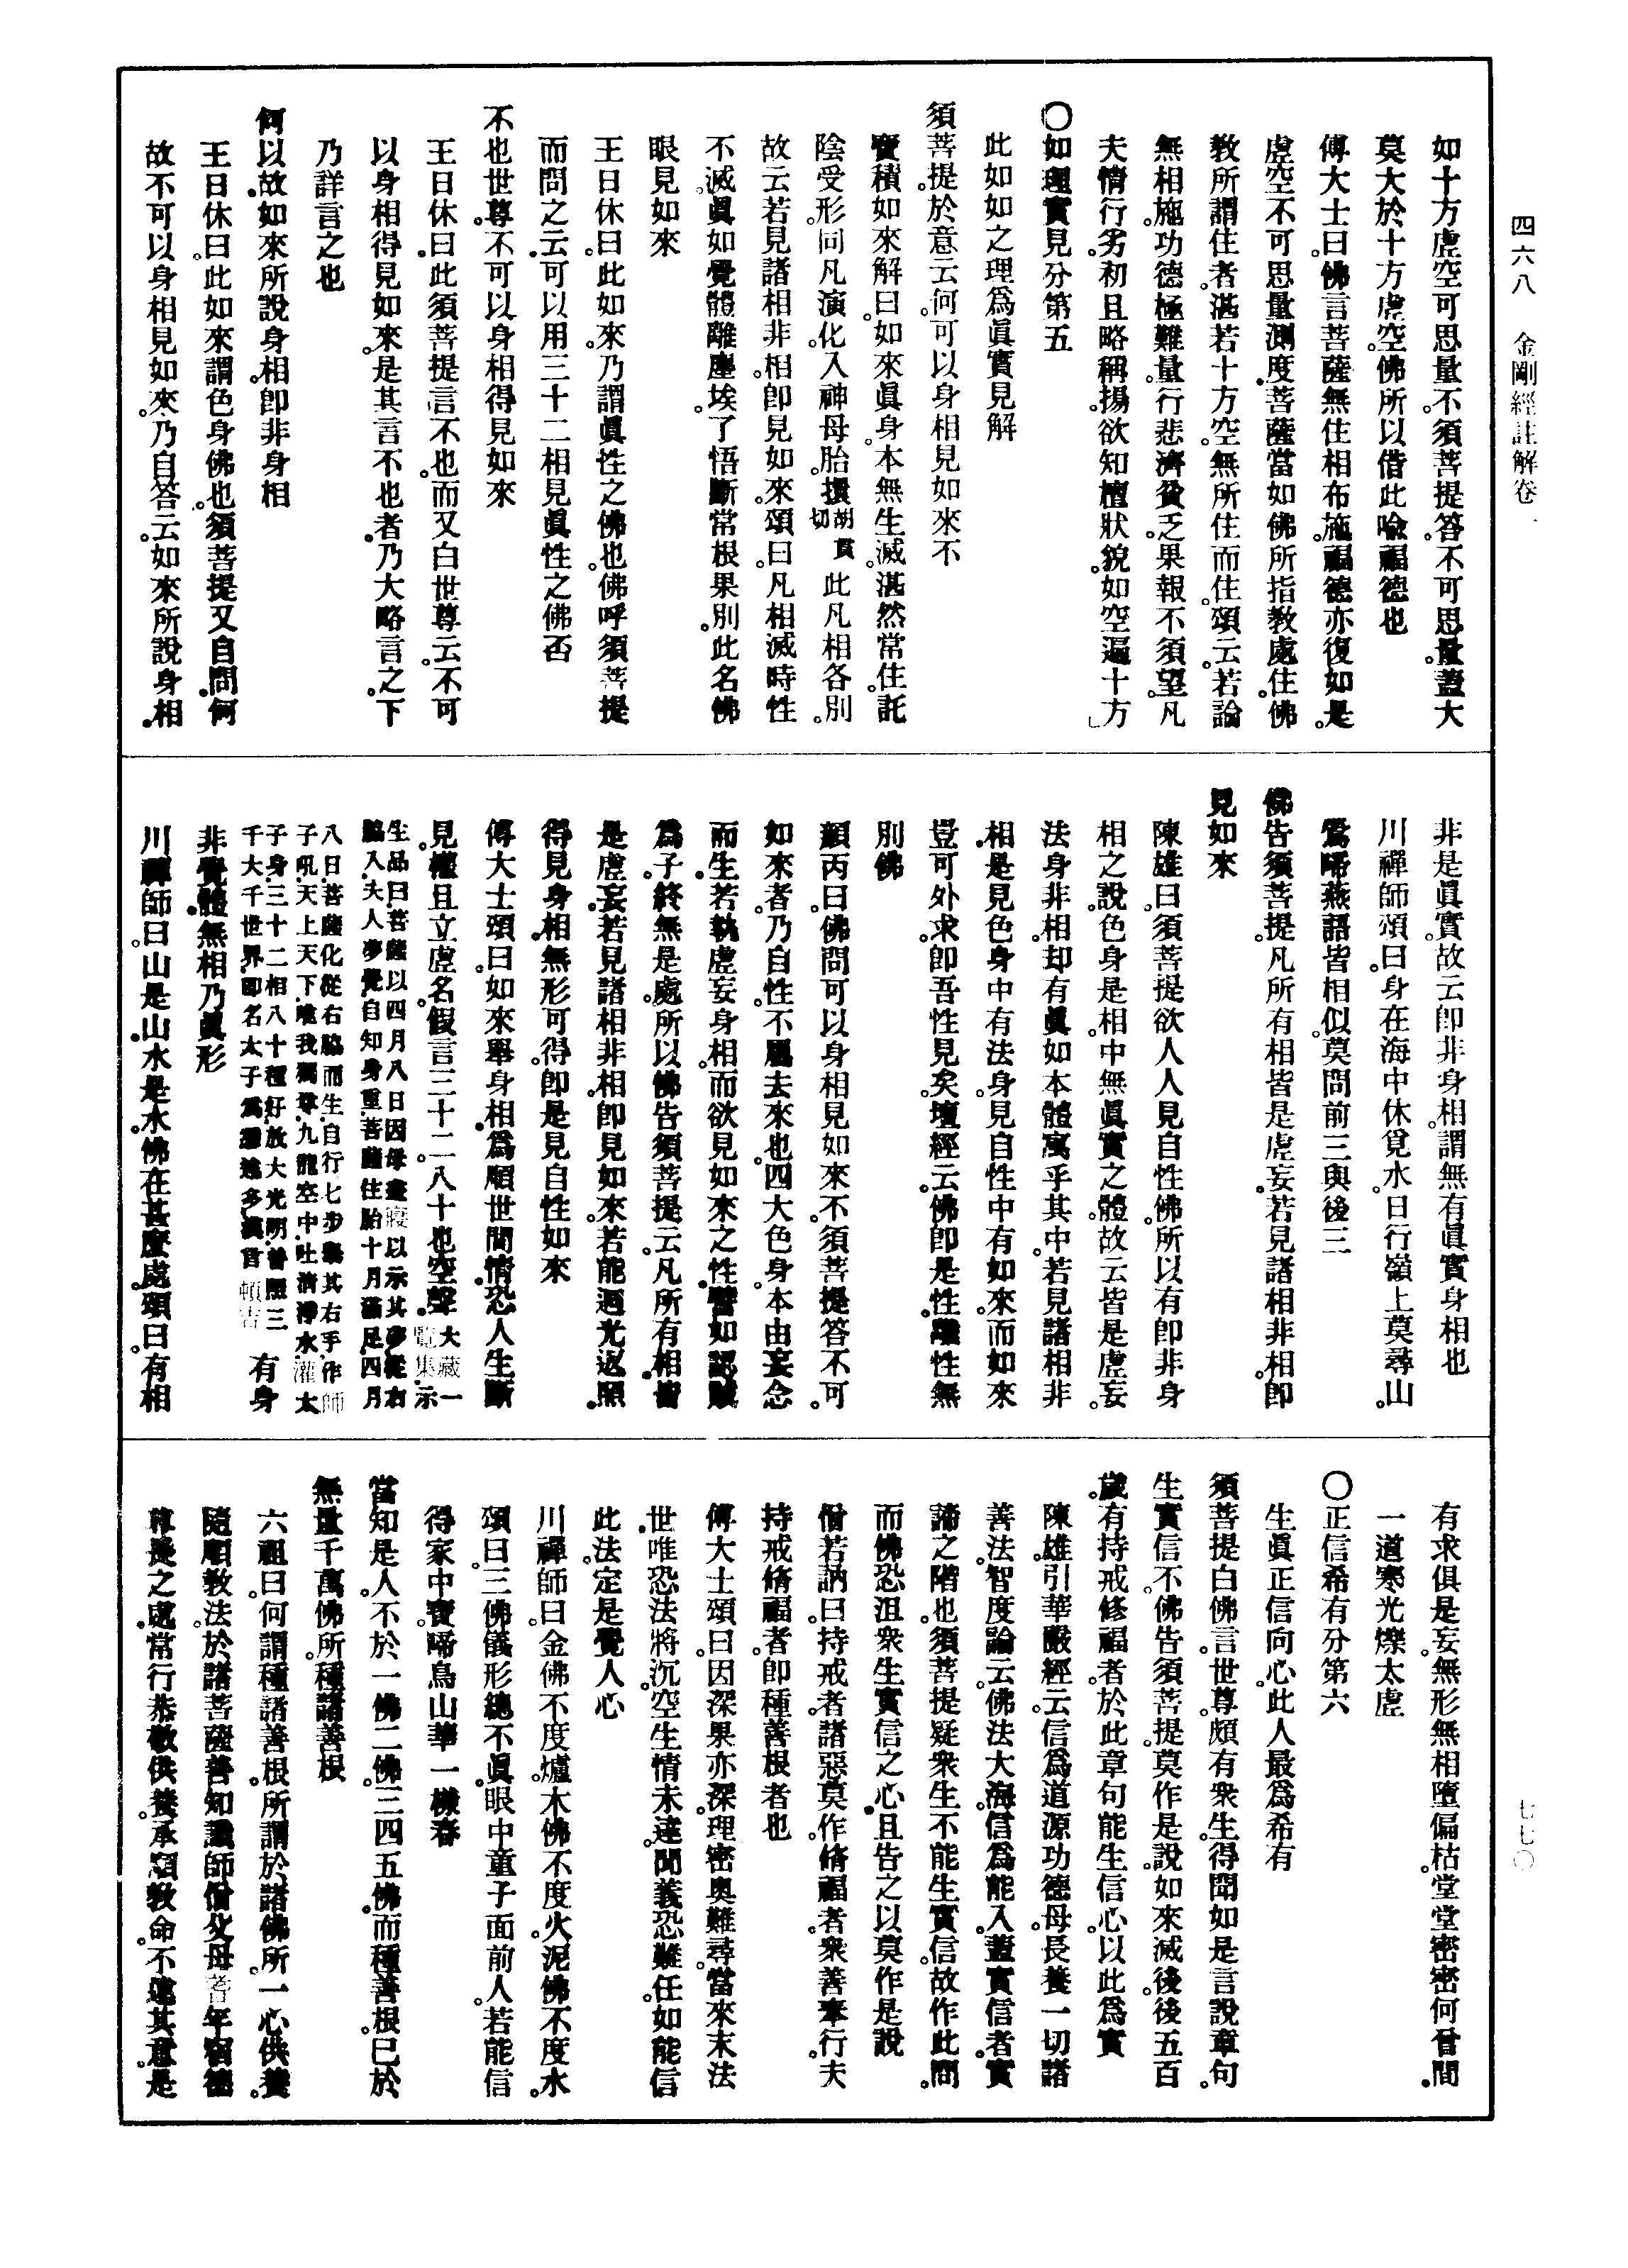 四六八　金剛經註解卷一
如十方虛空可思量不須菩提答不可思量蓋大
莫大於十方虛空佛所以借此喻福德也
傅大士曰佛言菩薩無住相布施福德亦復如是
虛空不可思量測度菩薩當如佛所指教處住佛
教所謂住者湛若十方空無所住而住頌云若論
無相施功德極難量行悲濟貧乏果報不須望凡
夫情行劣初且略稱揚欲知檀狀貌如空遍十方
〇如理實見分第五
此如如之理爲眞實見解
須菩提於意云何可以身相見如來不
寶積如來解曰如來眞身本無生滅湛然常住託
陰受形同凡演化入神母胎擐胡貫切此凡相各別
故云若見諸相非相卽見如來頌曰凡相滅時性
不滅眞如覺體離塵埃了悟斷常根果別此名佛
眼見如來
王日休曰此如來乃謂眞性之佛也佛呼須菩提
而問之云可以用三十二相見眞性之佛否
不也世尊不可以身相得見如來
王日休曰此須菩提言不也而又白世尊云不可
以身相得見如來是其言不也者乃大略言之下
乃詳言之也
何以故如來所說身相卽非身相
王日休曰此如來謂色身佛也須菩提又自問何
故不可以身相見如來乃自答云如來所說身相
非是眞實故云卽非身相謂無有眞實身相也
川禪師頌曰身在海中休覓水日行嶺上莫尋山
鶯啼燕語皆相似莫問前三與後三
佛告須菩提凡所有相皆是虛妄若見諸相非相卽
見如來
陳雄曰須菩提欲人人見自性佛所以有卽非身
相之說色身是相中無眞實之體故云皆是虛妄
法身非相却有眞如本體寓乎其中若見諸相非
相是見色身中有法身見自性中有如來而如來
豈可外求卽吾性見矣壇經云佛卽是性離性無
別佛
顏丙曰佛問可以身相見如來不須菩提答不可
如來者乃自性不屬去來也四大色身本由妄念
而生若執虛妄身相而欲見如來之性譬如認賊
爲子終無是處所以佛告須菩提云凡所有相皆
是虛妄若見諸相非相卽見如來若能迴光返照
得見身相無形可得卽是見自性如來
傅大士頌曰如來舉身相爲順世間情恐人生斷
見權且立虛名假言三十二八十也空聲大藏一覽集示
生品曰菩薩以四月八日因母晝寢以示其夢從右
脇入夫人夢覺自知身重菩薩住胎十月滿足四月
八日菩薩化從右脇而生自行七步舉其右手作師
子吼天上天下唯我獨尊九龍空中吐清淨水灌太
子身三十二相八十種好放大光明普照三
千大千世界卽名太子爲悉達多漢言頓吉有身
非覺體無相乃眞形
川禪師曰山是山水是水佛在甚麼處頌曰有相
有求俱是妄無形無相墮偏枯堂堂密密何曾間
一道寒光爍太虛
〇正信希有分第六
生眞正信向心此人最爲希有
須菩提白佛言世尊頗有衆生得聞如是言說章句
生實信不佛告須菩提莫作是說如來滅後後五百
歲有持戒修福者於此章句能生信心以此爲實
陳雄引華嚴經云信爲道源功德母長養一切諸
善法智度論云佛法大海信爲能入蓋實信者實
諦之階也須菩提疑衆生不能生實信故作此問
而佛恐沮衆生實信之心且告之以莫作是說
僧若訥曰持戒者諸惡莫作脩福者衆善奉行夫
持戒脩福者卽種善根者也
傅大士頌曰因深果亦深理密奧難尋當來末法
世唯恐法將沉空生情未達聞義恐難任如能信
此法定是覺人心
川禪師曰金佛不度爐木佛不度火泥佛不度水
頌曰三佛儀形總不眞眼中童子面前人若能信
得家中寶啼鳥山華一樣春
當知是人不於一佛二佛三四五佛而種善根已於
無量千萬佛所種諸善根
六祖曰何謂種諸善根所謂於諸佛所一心供養
隨順教法於諸菩薩善知識師僧父母耆年宿德
尊長之處常行恭敬供養承順教命不違其意是
七七〇